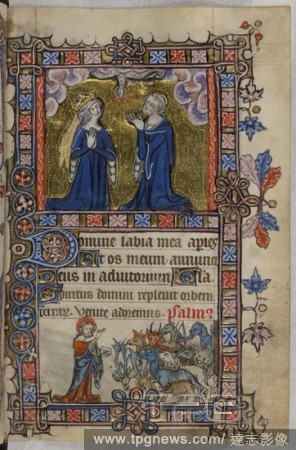 Domine labia mea apies
Et os meum annunc
Deus in adiutorium. Gla.
Spiritus domini repleuit orbem
terrar. Venite adoremus. psalm?
www.tpgnews.com/達志影像